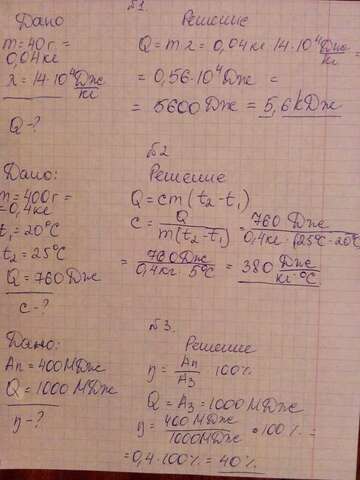 №1
Дано
m=40г=
0,04кг
λ=14·10⁴Дж/кг
Q-?
Решение
Q=mλ=0,04кг·14·10⁴Дж/кг=
=0,56·10⁴Дж=
=5600Дж=5,6кДж
№2
Дано:
m=400г=
=0,4кг
t₁=20°C
t₂=25°C
Q=760Дж
c-?
Решение
Q=cm(t₂-t₁)
c=Q/m(t₂-t₁)=760Дж/0,4кг·(25°C-20°C
=760Дж/0,4кг·5°C=380Дж/кг·°C
№3.
Дано:
Aп=400МДж
Q=1000МДж
η-?
Решение
η=Aп/Aз·100%
Q=Aз=1000МДж
η=400МДж/1000МДж·100%=
=0,4·100%=40%